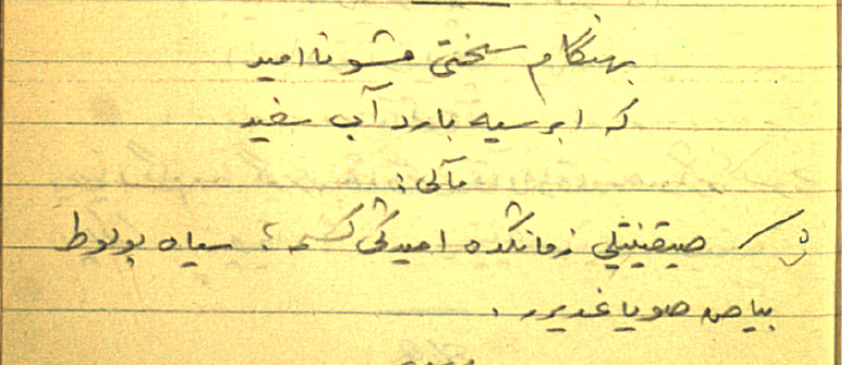 بهنگام سختی مشو نا امید
که ابر سیه بارد آب سفید
مآلی :
صیقینتیلی زمانكده امیدكی كسمه ؛ سیاه بولوط
بیاض صو یاغدیرر .